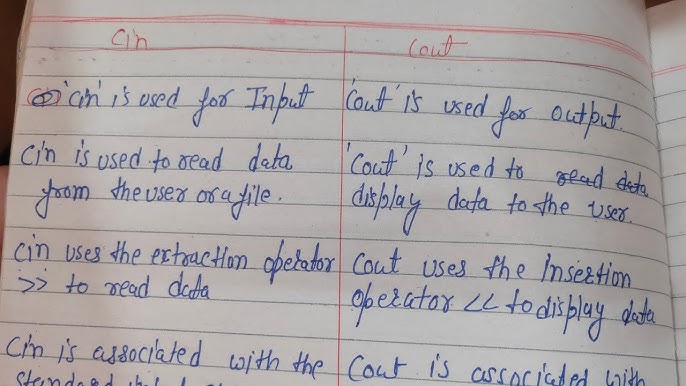 Cin
Cout
'Cin' is used for Input
'Cout' is used for output.
Cin is used to read data
from the user or a file.
'Cout' is used to read data
display data to the user.
Cin uses the extraction operator
>> to read data
Cout uses the Insertion
operator << to display data
Cin is associated with the
Cout is associated with